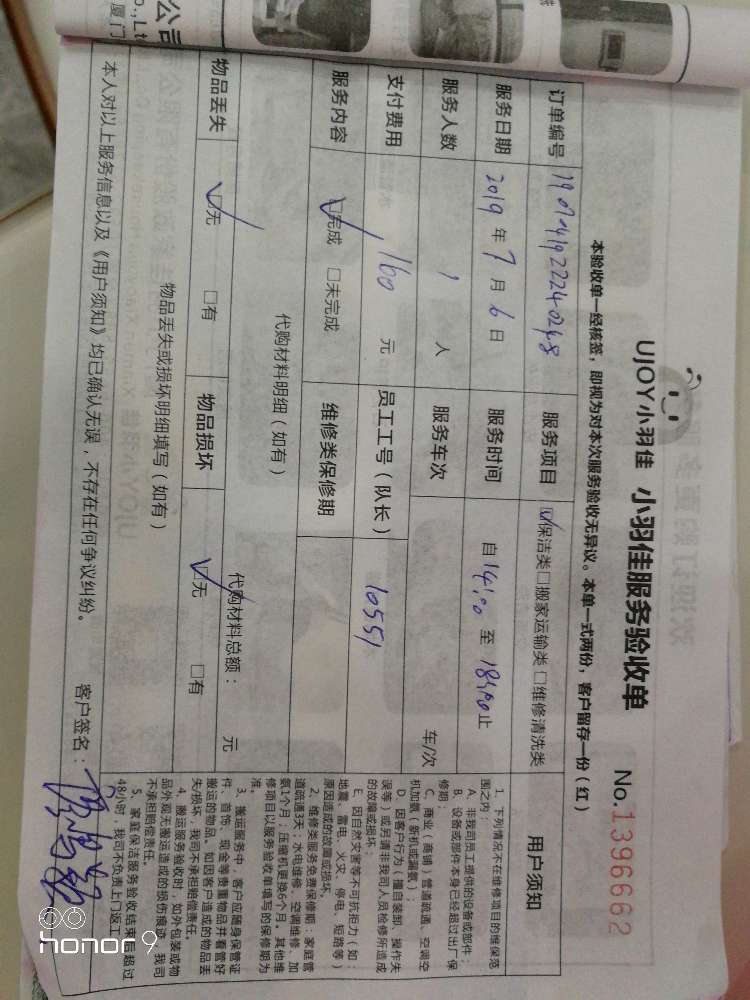 公司
o.,Lt
厦门
UJOY小羽佳 小羽佳服务验收单
No.1396662
本验收单一经核签，即视为对本次服务验收无异议。本单一式两份，客户留存一份（红）
订单编号 服务项目 ☑保洁类□搬家运输类□维修清洗类
服务日期 2019 年 7 月 6 日 服务时间 自 14:00 至 18:00 止
服务人数 1 人 服务车次 车/次
支付费用 160 元 员工工号（队长） 10551
服务内容 ☑完成 □未完成 维修类保修期
代购材料明细（如有） 代购材料总额： 元
物品丢失 ☑无 □有 物品损坏 ☑无 □有
物品丢失或损坏明细填写（如有）
用户须知
1、下列情况不在维修项目的维保范
围之内：
A、非我司员工提供的设备或部件；
B、设备或部件本身已经超过出厂保
修期；
C、商业（商铺）管道疏通、空调空
机加氨（新机或漏氨）；
D、因客户行为（擅自装卸、操作失
误等）或另请非我司人员检修所造成
的故障或损坏；
E、因自然灾害等不可抗拒力（如：
地震、雷电、火灾、停电、短路等）
原因造成的故障或损坏。
2、维修类服务免费保修期：家庭管
道疏通3天；水电维修、空调维修、加
氨1个月；压缩机更换6个月。其他维
修项目以服务验收单填写的保修期为
准。
3、搬运服务中，客户应随身保管证
件、首饰、现金等贵重物品并看管好
搬运的物品。如因客户造成的物品丢
失/损坏，我司不承担赔偿责任。
4、搬运服务验收时，如外包装或物
品外观无搬运造成的损伤痕迹，我司
不承担赔偿责任。
5、家庭保洁服务验收结束后超过
48小时，我司不负责上门返工。
本人对以上服务信息以及《用户须知》均已确认无误，不存在任何争议纠纷。 客户签名：
honor 9